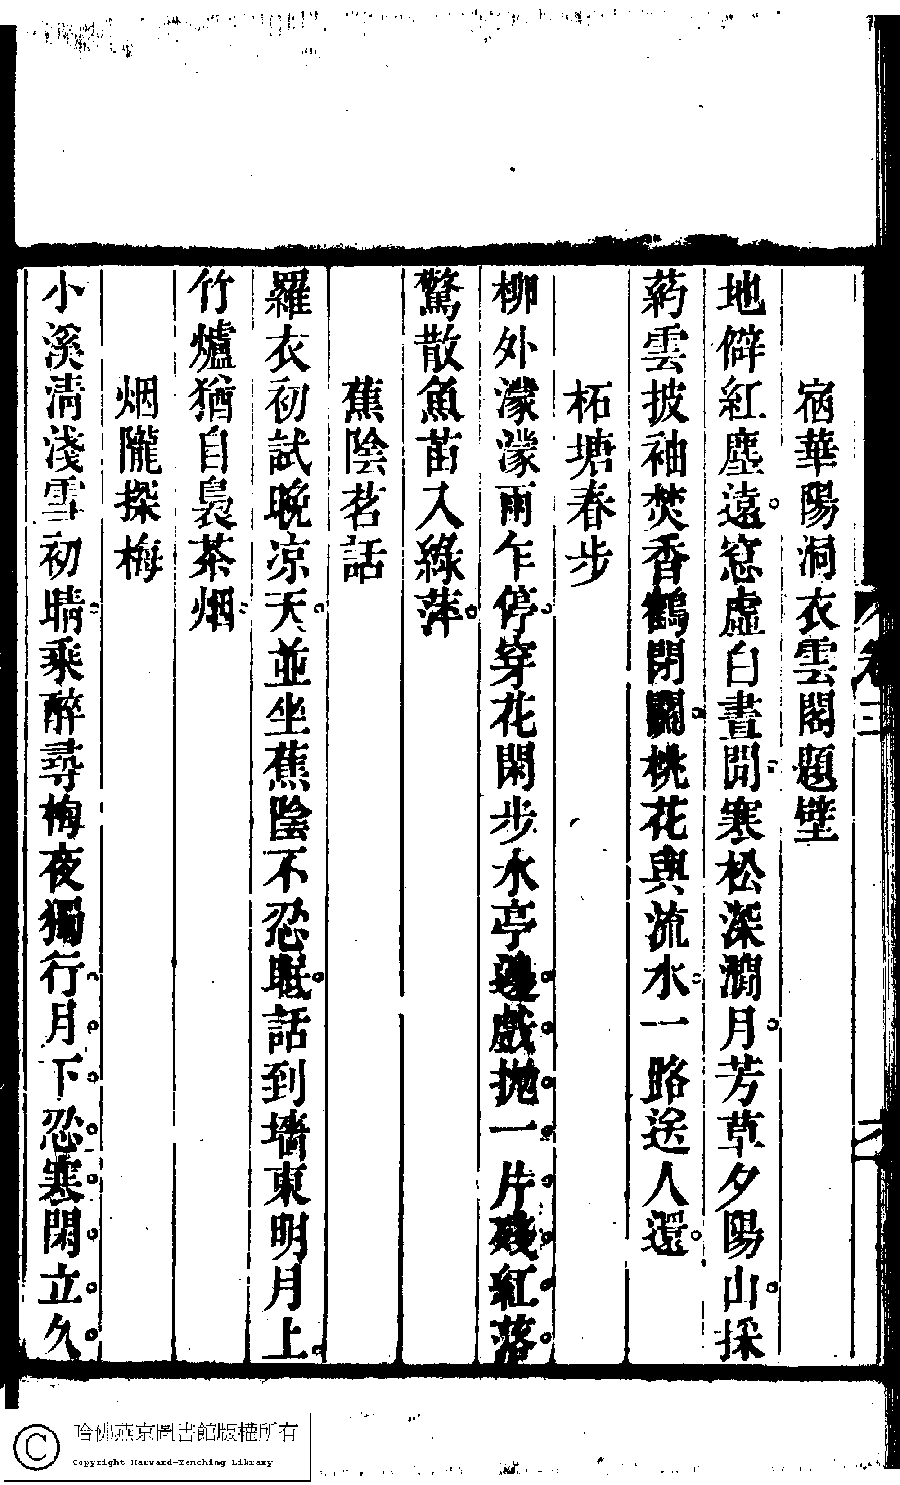 宿華陽洞衣雲閣題壁
地僻紅塵遠。窓虛白晝閒。寒松深澗月。芳草夕陽山。採
葯雲披袖。焚香鶴閉關。桃花與流水。一路送人還。
柘塘春步
柳外濛濛雨乍停。穿花閑步水亭邊。戲抛一片殘紅落。
驚散魚苗入綠萍。
蕉陰茗話
羅衣初試晚凉天。並坐蕉陰不忍眠。話到墻東明月上。
竹爐猶自裊茶烟。
烟隴探梅
小溪清淺雪初晴。乘醉尋梅夜獨行。月下忍寒閑立久。
卷三
哈佛燕京圖書館版權所有
Copyright Harvard-Yenching Library